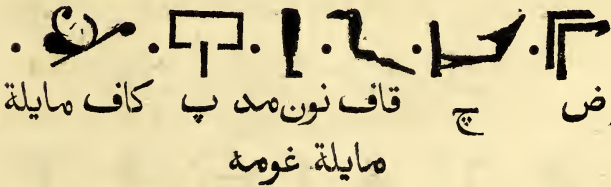 ض چ قاف نون مد پ كاف مايلة
مايلة غومه